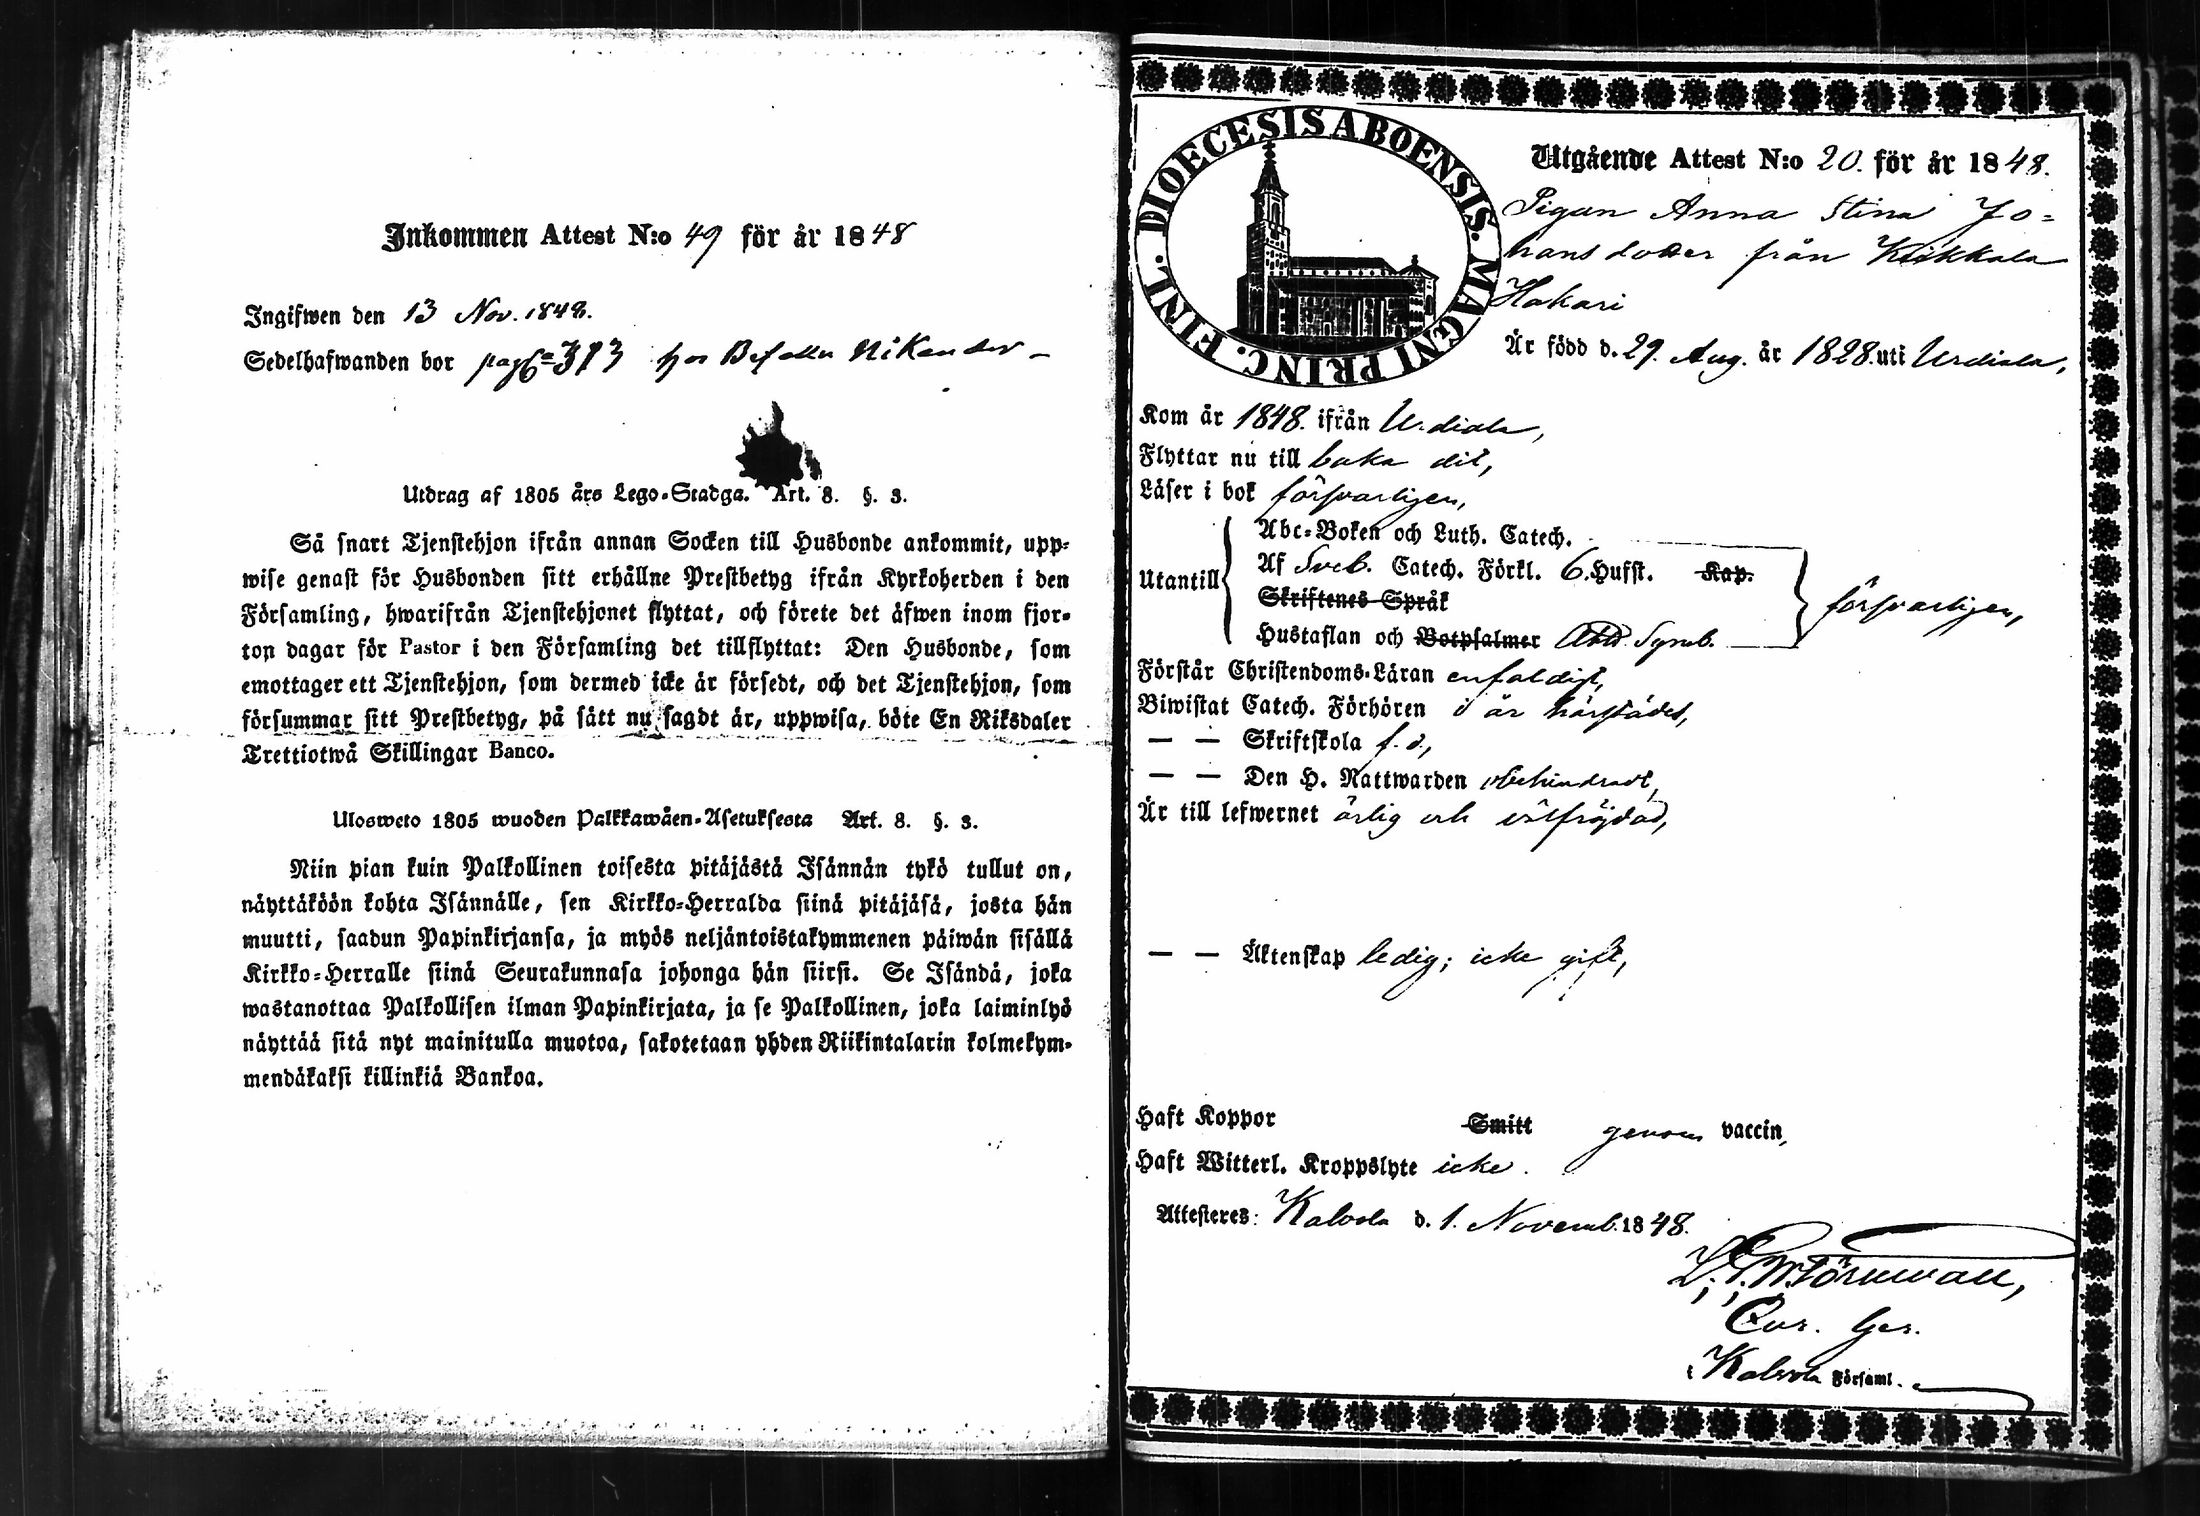 Inkommen Attest N:o 49 för år 1848
Ingifwen den 13 Nov. 1848.
Sedelhafwanden bor pag 373 hos Nikander
Utdrag af 1805 års Lego-Stadga. Art. 8. §. 3.
Så snart Tjenstehjon ifrån annan Socken till Husbonde ankommit, upp-
wise genast för Husbonden sitt erhållne Prestbetyg ifrån Kyrkoherden i den
Församling, hwarifrån Tjenstehjonet flyttat, och förete det äfwen inom fjor-
ton dagar för Pastor i den Församling det tillflyttat: Den Husbonde, som
emottager ett Tjenstehjon, som dermed icke är försedt, och det Tjenstehjon, som
försummar sitt Prestbetyg, på sätt nu sagdt är, uppwisa, böte En Riksdaler
Trettiotwå Skillingar Banco.
Ulosweto 1805 wuoden Palkkawäen-Asetuksesta Art. 8. §. 3.
Niin pian kuin Palkollinen toisesta pitäjästä Isännän tykö tullut on,
näyttäköön kohta Isännälle, sen Kirkko-Herralda siinä pitäjäsä, josta hän
muutti, saadun Papinkirjansa, ja myös neljäntoistakymmenen päiwän sisällä
Kirkko-Herralle siinä Seurakunnasa johonga hän siirsi. Se Isändä, joka
wastanottaa Palkollisen ilman Papinkirjata, ja se Palkollinen, joka laiminlyö
näyttää sitä nyt mainitulla muotoa, sakotetaan yhden Riikintalarin kolmekym-
mendäkaksi killinkiä Bankoa.
DIOECESIS ABOENSIS. MAGNI PRINC. FINL.
Utgående Attest N:o 20. för år 1848.
Pigan Anna Stina Jo=
hansdotter från Keikkala
Hakari
Är född d. 29. Aug. år 1828. uti Urdiala,
Kom år 1848. ifrån Urdiala,
Flyttar nu till baka dit,
Läser i bok försvarligen,
Utantill
Abc-Boken och Luth. Catech.
Af Sveb. Catech. Förkl. 6. Hufst. Kap.
Skriftenes Språk
Hustaflan och Botpsalmer Ath. Symb.
försvarligen,
Förstår Christendoms-Läran enfaldigt,
Biwistat Catech. Förhören i år härstädes,
— — Skriftskola f. d.,
— — Den H. Nattwarden obehindradt,
Är till lefwernet ärlig och välfrejdad,
— — Äktenskap ledig; icke gift,
Haft Koppor Smitt genom vaccin,
Haft Witterl. Kroppslyte icke.
Attesteres: Kalvola d. 1. Novemb. 1848.
Törnwall,
Kalvola Församl.